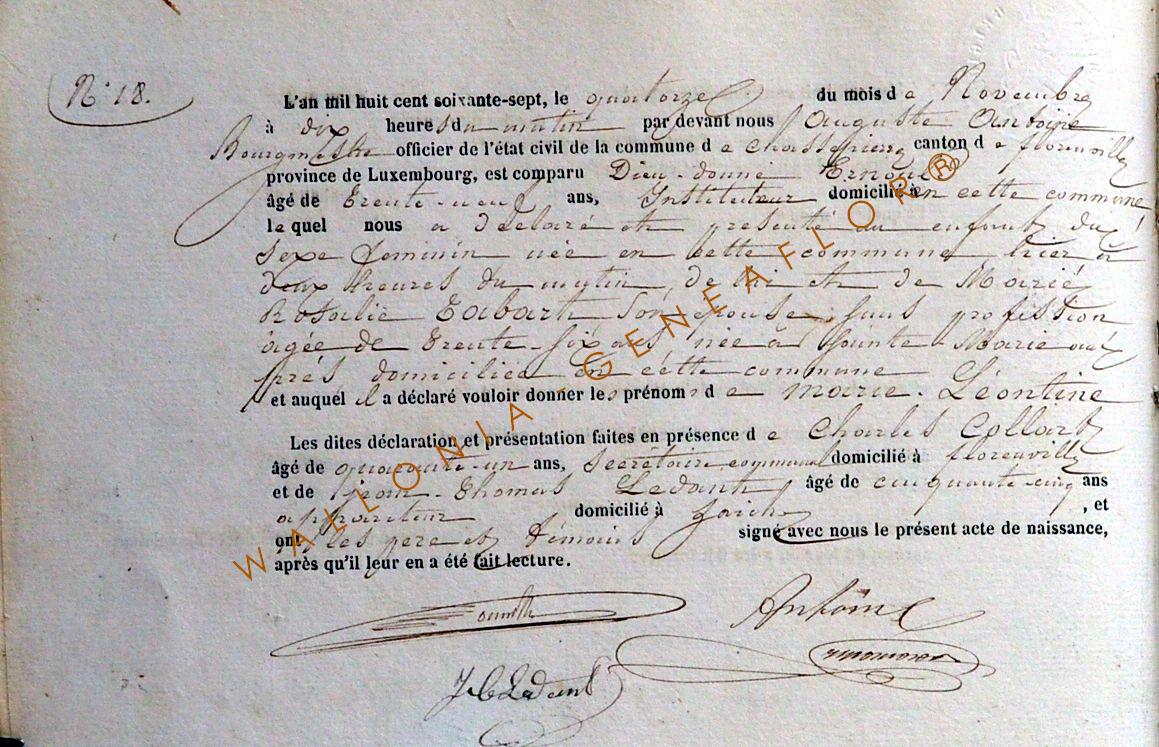 N° 18.
L'an mil huit cent soixante-sept, le quatorze du mois de Novembre
à dix heures du matin par devant nous Auguste Antoine
Bourgmestre officier de l'état civil de la commune de Chassepierre canton de florenville
province de Luxembourg, est comparu Dieu-donné Ernoux
âgé de trente-neuf ans, Instituteur domicilié en cette commune,
lequel nous a déclaré et présenté un enfant du
sexe feminin née en cette commune hier à
deux heures du matin, de lui et de Marie
Rosalie Tabart son épouse, sans profession
agée de trente-six ans née à Sainte-Marie
près domiciliée en cette commune
et auquel il a déclaré vouloir donner les prénoms de Marie-Léontine
Les dites déclaration et présentation faites en présence de Charles Collart
âgé de quarante-un ans, secrétaire communal domicilié à florenville
et de jean-thomas Ledant âgé de cinquante-cinq ans
appariteur domicilié à , et
ont les père et témoins signé avec nous le présent acte de naissance,
après qu'il leur en a été fait lecture.
Antoine
Ledant
WALLONIA - GENEAFLOR ®